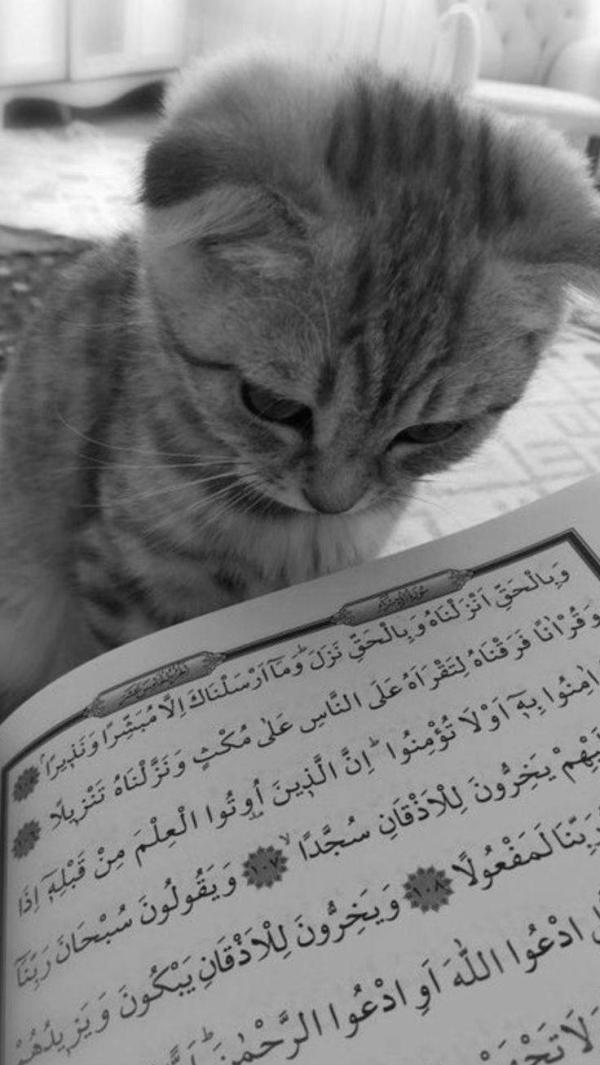 سُورَةُ الْاِسْرَاءِ
وَبِالْحَقِّ اَنْزَلْنَاهُ وَبِالْحَقِّ نَزَلَ وَمَٓا اَرْسَلْنَاكَ اِلَّا مُبَشِّرًا وَنَذِيرًاۢ
وَقُرْاٰنًا فَرَقْنَاهُ لِتَقْرَاَهُ عَلَى النَّاسِ عَلٰى مُكْثٍ وَنَزَّلْنَاهُ تَنْزِيلًا
اٰمِنُوا بِهٖٓ اَوْ لَا تُؤْمِنُواۜ اِنَّ الَّذٖينَ اُو۫تُوا الْعِلْمَ مِنْ قَبْلِهٖٓ اِذَا
يَخِرُّونَ لِلْاَذْقَانِ سُجَّدًاۙ ١٠٧ وَيَقُولُونَ سُبْحَانَ رَبِّنَٓا
رَبِّنَا لَمَفْعُولًا ١٠٨ وَيَخِرُّونَ لِلْاَذْقَانِ يَبْكُونَ وَيَزٖيدُهُمْ
ادْعُوا اللّٰهَ اَوِ ادْعُوا الرَّحْمٰنَۜ
وَلَا تَجْهَرْ